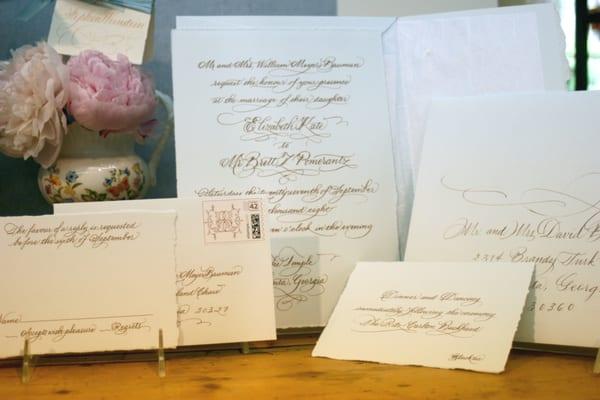 Mr. and Mrs. William Meyer Bauman
request the honour of your presence
at the marriage of their daughter
Elizabeth Kate
to
Mr. Brett Pomerantz
Saturday, the twenty-seventh of September
thousand eight
o'clock in the evening
Temple
Atlanta, Georgia
The favour of a reply is requested
before the of September
Name
Accepts with pleasure Regrets
42
Meyer Bauman
30327
Mr. and Mrs. David B
2314 Brandy Turk
Georgia
30360
Dinner and Dancing
immediately following the ceremony
The Ritz-Carlton Buckhead
Black tie